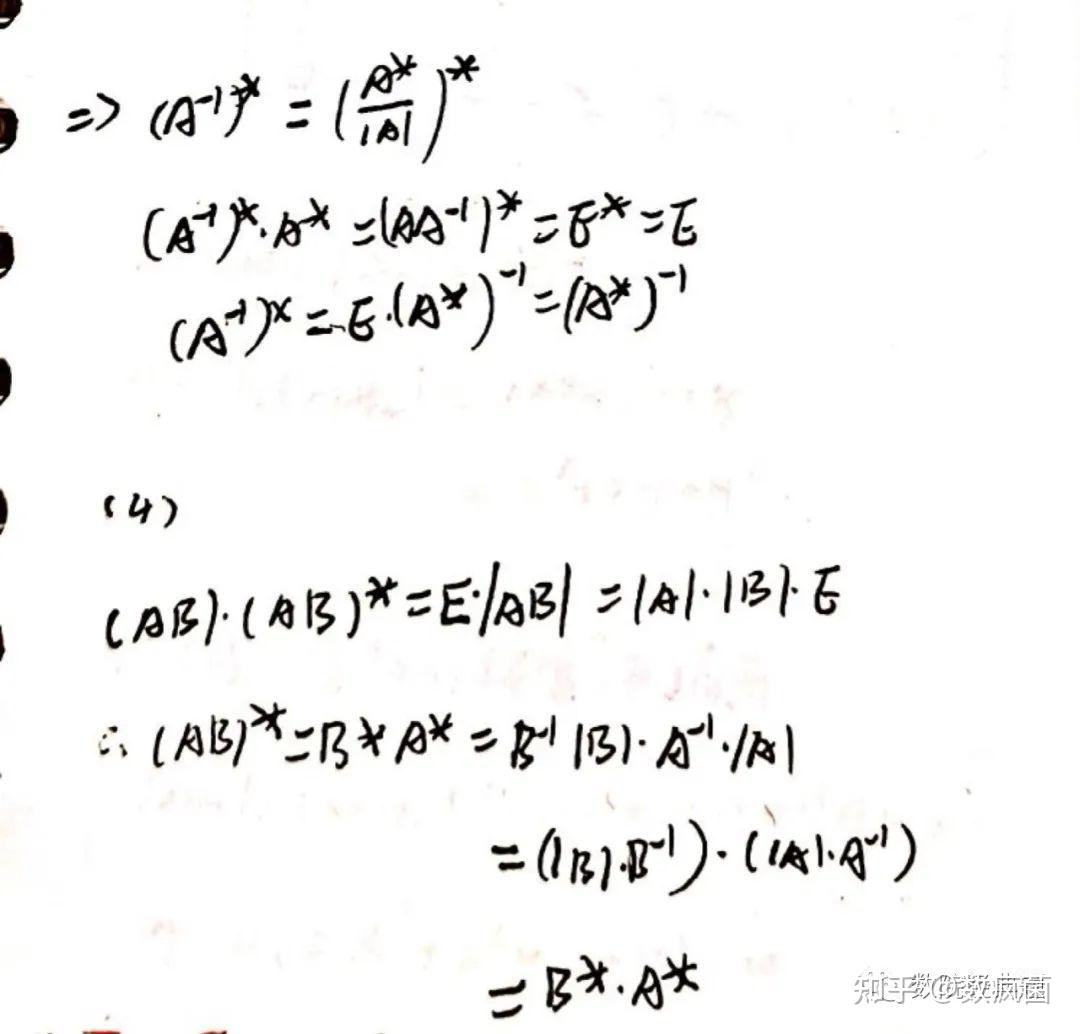 => (A⁻¹)* = (A*/|A|)*
(A⁻¹)*·A* =(AA⁻¹)* = E* = E
(A⁻¹)* = E·(A*)⁻¹ = (A*)⁻¹
(4)
(AB)·(AB)* = E·|AB| = |A|·|B|·E
∴ (AB)* = B*A* = B⁻¹|B|·A⁻¹·|A|
= (|B|·B⁻¹)·(|A|·A⁻¹)
= B*·A*
知乎 @数疯菌